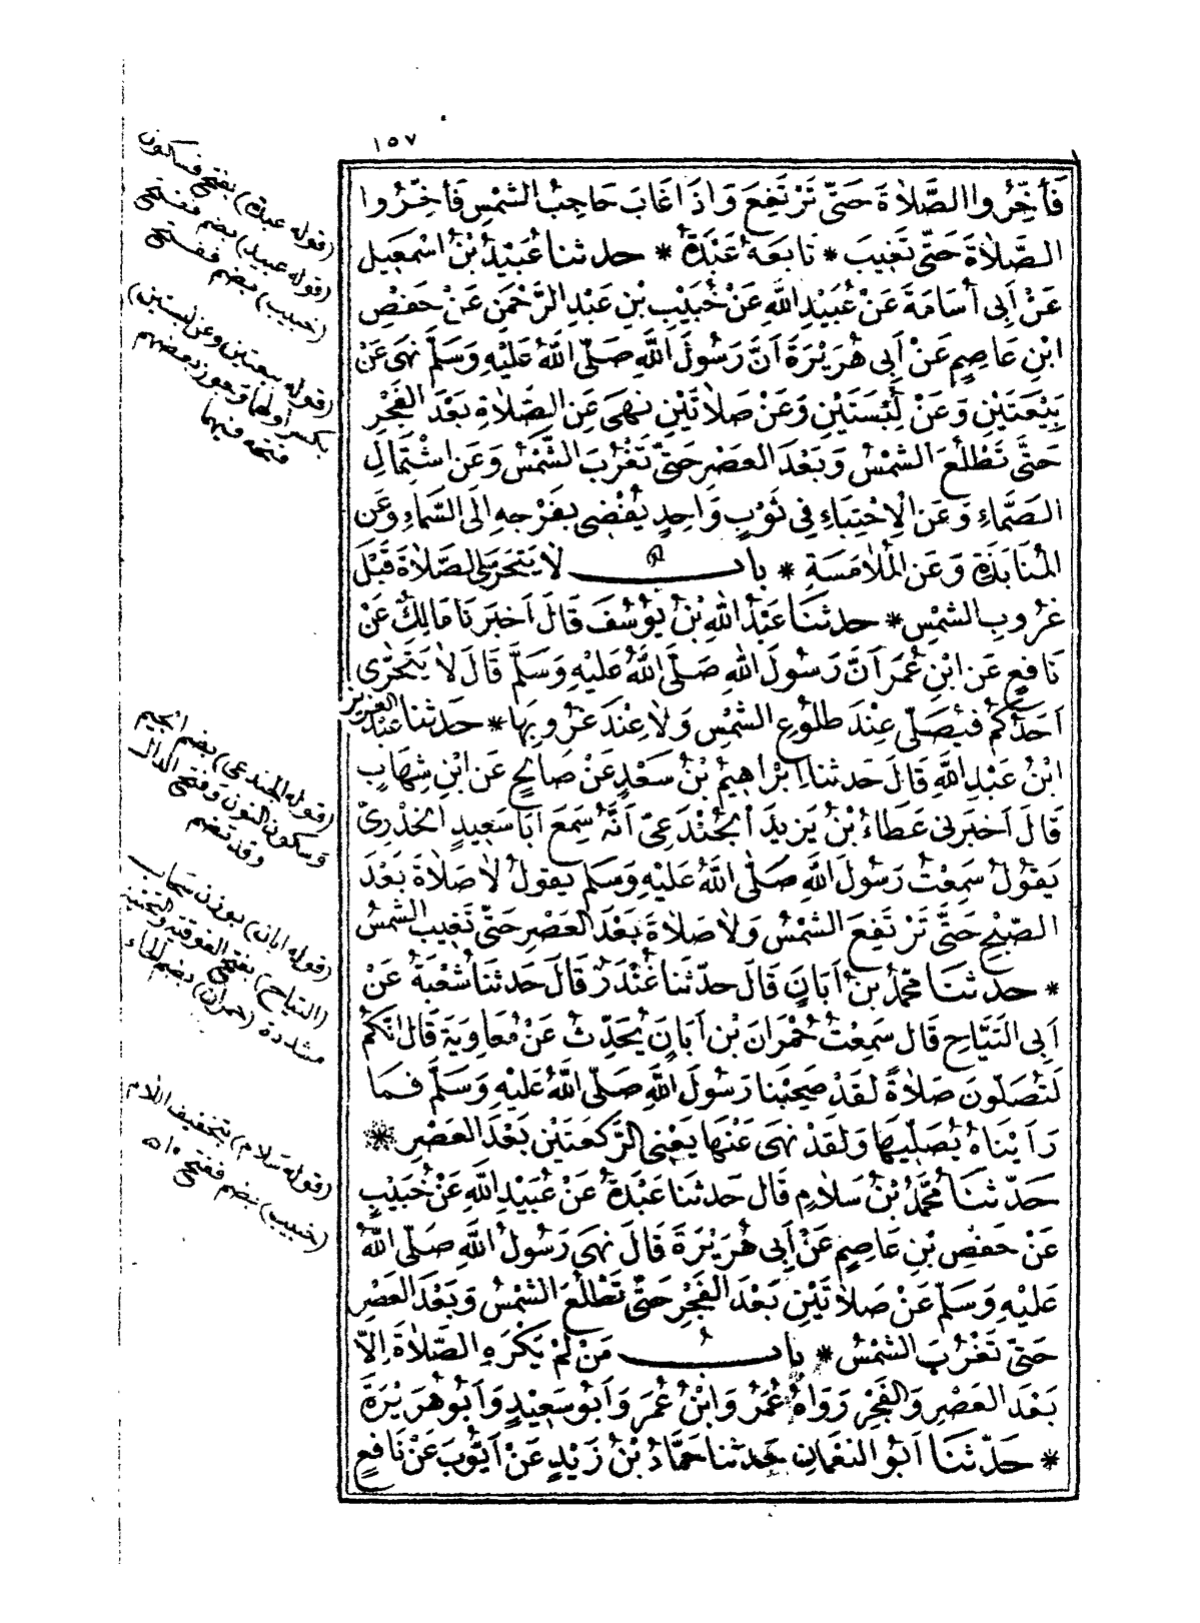 ١٥٧
فَأَخِّرُوا الصَّلَاةَ حَتَّى تَرْتَفِعَ وَاِذَا غَابَ حَاجِبُ الشَّمْسِ فَأَخِّرُوا
الصَّلَاةَ حَتَّى تَغِيبَ * تَابَعَهُ عَبْدَةُ * حدثنا عُبَيْدُ بْنُ اسْمَعِيلَ
عَنْ اَبِى اُسَامَةَ عَنْ عُبَيْدِ اللهِ عَنْ خُبَيْبِ بْنِ عَبْدِ الرَّحْمَنِ عَنْ حَفْصِ
ابْنِ عَاصِمٍ عَنْ أَبِى هُرَيْرَةَ اَنَّ رَسُولَ اللهِ صَلَّى اللهُ عَلَيْهِ وَسَلَّمَ نَهَى عَنْ
بَيْعَتَيْنِ وَعَنْ لُِبْسَتَيْنِ وَعَنْ صَلَاتَيْنِ نَهَى عَنِ الصَّلَاةِ بَعْدَ الْفَجْرِ
حَتَّى تَطْلُعَ الشَّمْسُ وَبَعْدَ الْعَصْرِ حَتَّى تَغْرُبَ الشَّمْسُ وَعَنِ اشْتِمَالِ
الصَّمَّاءِ وَعَنِ الْاِحْتِبَاءِ فِي ثَوْبٍ وَاحِدٍ يُفْضِى بِفَرْجِهِ اِلَى السَّمَاءِ وَعَنِ
الْمُنَابَذَةِ وَعَنِ الْمُلَامَسَةِ * باب لَا يَتَحَرَّى الصَّلَاةَ قَبْلَ
غُرُوبِ الشَّمْسِ * حدثنَا عَبْدُ اللهِ بْنُ يُوسُفَ قَالَ اَخْبَرَنَا مَالِكٌ عَنْ
نَافِعٍ عَنِ ابْنِ عُمَرَ اَنَّ رَسُولَ اللهِ صَلَّى اللهُ عَلَيْهِ وَسَلَّمَ قَالَ لَا يَتَحَرَّى
اَحَدُكُمْ فَيُصَلِّى عِنْدَ طُلُوعِ الشَّمْسِ وَلَا عِنْدَ غُرُوبِهَا * حَدثنا عَبْدُ الْعَزِيزِ
ابْنُ عَبْدِ اللهِ قَالَ حَدثنا اِبْرَاهِيمُ بْنُ سَعْدٍ عَنْ صَالِحٍ عَنِ ابْنِ شِهَابٍ
قَالَ اَخْبَرَنِى عَطَاءُ بْنُ يَزِيدَ الْجُنْدَعِىُّ اَنَّهُ سَمِعَ اَبَا سَعِيدٍ الْخُدْرِىَّ
يَقُولُ سَمِعْتُ رَسُولَ اللهِ صَلَّى اللهُ عَلَيْهِ وَسَلَّمَ يَقُولُ لَا صَلَاةَ بَعْدَ
الصُّبْحِ حَتَّى تَرْتَفِعَ الشَّمْسُ وَلَا صَلَاةَ بَعْدَ الْعَصْرِ حَتَّى تَغِيبَ الشَّمْسُ
* حدثنَا مُحَمَّدُ بْنُ أَبَانَ قَالَ حَدَّثَنَا غُنْدَرٌ قَالَ حَدثنَا شُعْبَةُ عَنْ
اَبِى التَّيَّاحِ قَالَ سَمِعْتُ حُمْرَانَ بْنَ اَبَانَ يُحَدِّثُ عَنْ مُعَاوِيَةَ قَالَ اِنَّكُمْ
لَتُصَلُّونَ صَلَاةً لَقَدْ صَحِبْنَا رَسُولَ اللهِ صَلَّى اللهُ عَلَيْهِ وَسَلَّمَ فَمَا
رَاَيْنَاهُ يُصَلِّيهَا وَلَقَدْ نَهَى عَنْهَا يَعْنِى الرَّكْعَتَيْنِ بَعْدَ الْعَصْرِ *
حَدّثنَا مُحَمَّدُ بْنُ سَلَامٍ قَالَ حَدثنا عَبْدَةُ عَنْ عُبَيْدِ اللهِ عَنْ خُبَيْبٍ
عَنْ حَفْصِ بْنِ عَاصِمٍ عَنْ أَبِى هُرَيْرَةَ قَالَ نَهَى رَسُولُ اللهِ صَلَّى اللهُ
عَلَيْهِ وَسَلَّمَ عَنْ صَلَاتَيْنِ بَعْدَ الْفَجْرِ حَتَّى تَطْلُعَ الشَّمْسُ وَبَعْدَ الْعَصْرِ
حَتَّى تَغْرُبَ الشَّمْسُ * باب مَنْ لَمْ يَكْرَهِ الصَّلَاةَ اِلَّا
بَعْدَ الْعَصْرِ وَالْفَجْرِ رَوَاهُ عُمَرُ وَابْنُ عُمَرَ وَاَبُو سَعِيْدٍ وَاَبُو هُرَيْرَةَ
* حَدّثنَا اَبُو النُّعْمَانِ حَدثنا حَمَّادُ بْنُ زَيْدٍ عَنْ اَيُّوبَ عَنْ نَافِعٍ
(قوله عبدة) بفتح فسكون
(قوله عبيد) بضم ففتح
(خبيب) بضم ففتح
(قوله بيعتين وعن لبستين)
بكسر اولهما ويجوز بعضهم
فتحه فيهما
(قوله الجندعى) بضم الجيم
وسكون النون وفتح الدال
وقد تضم
(قوله ابان) بوزن سحاب
(التياح) بفتح الفوقية والتحتية
مشددة (حمران) بضم الحاء
(قوله سلام) بتخفيف اللام
(خبيب) بضم ففتح ١٥